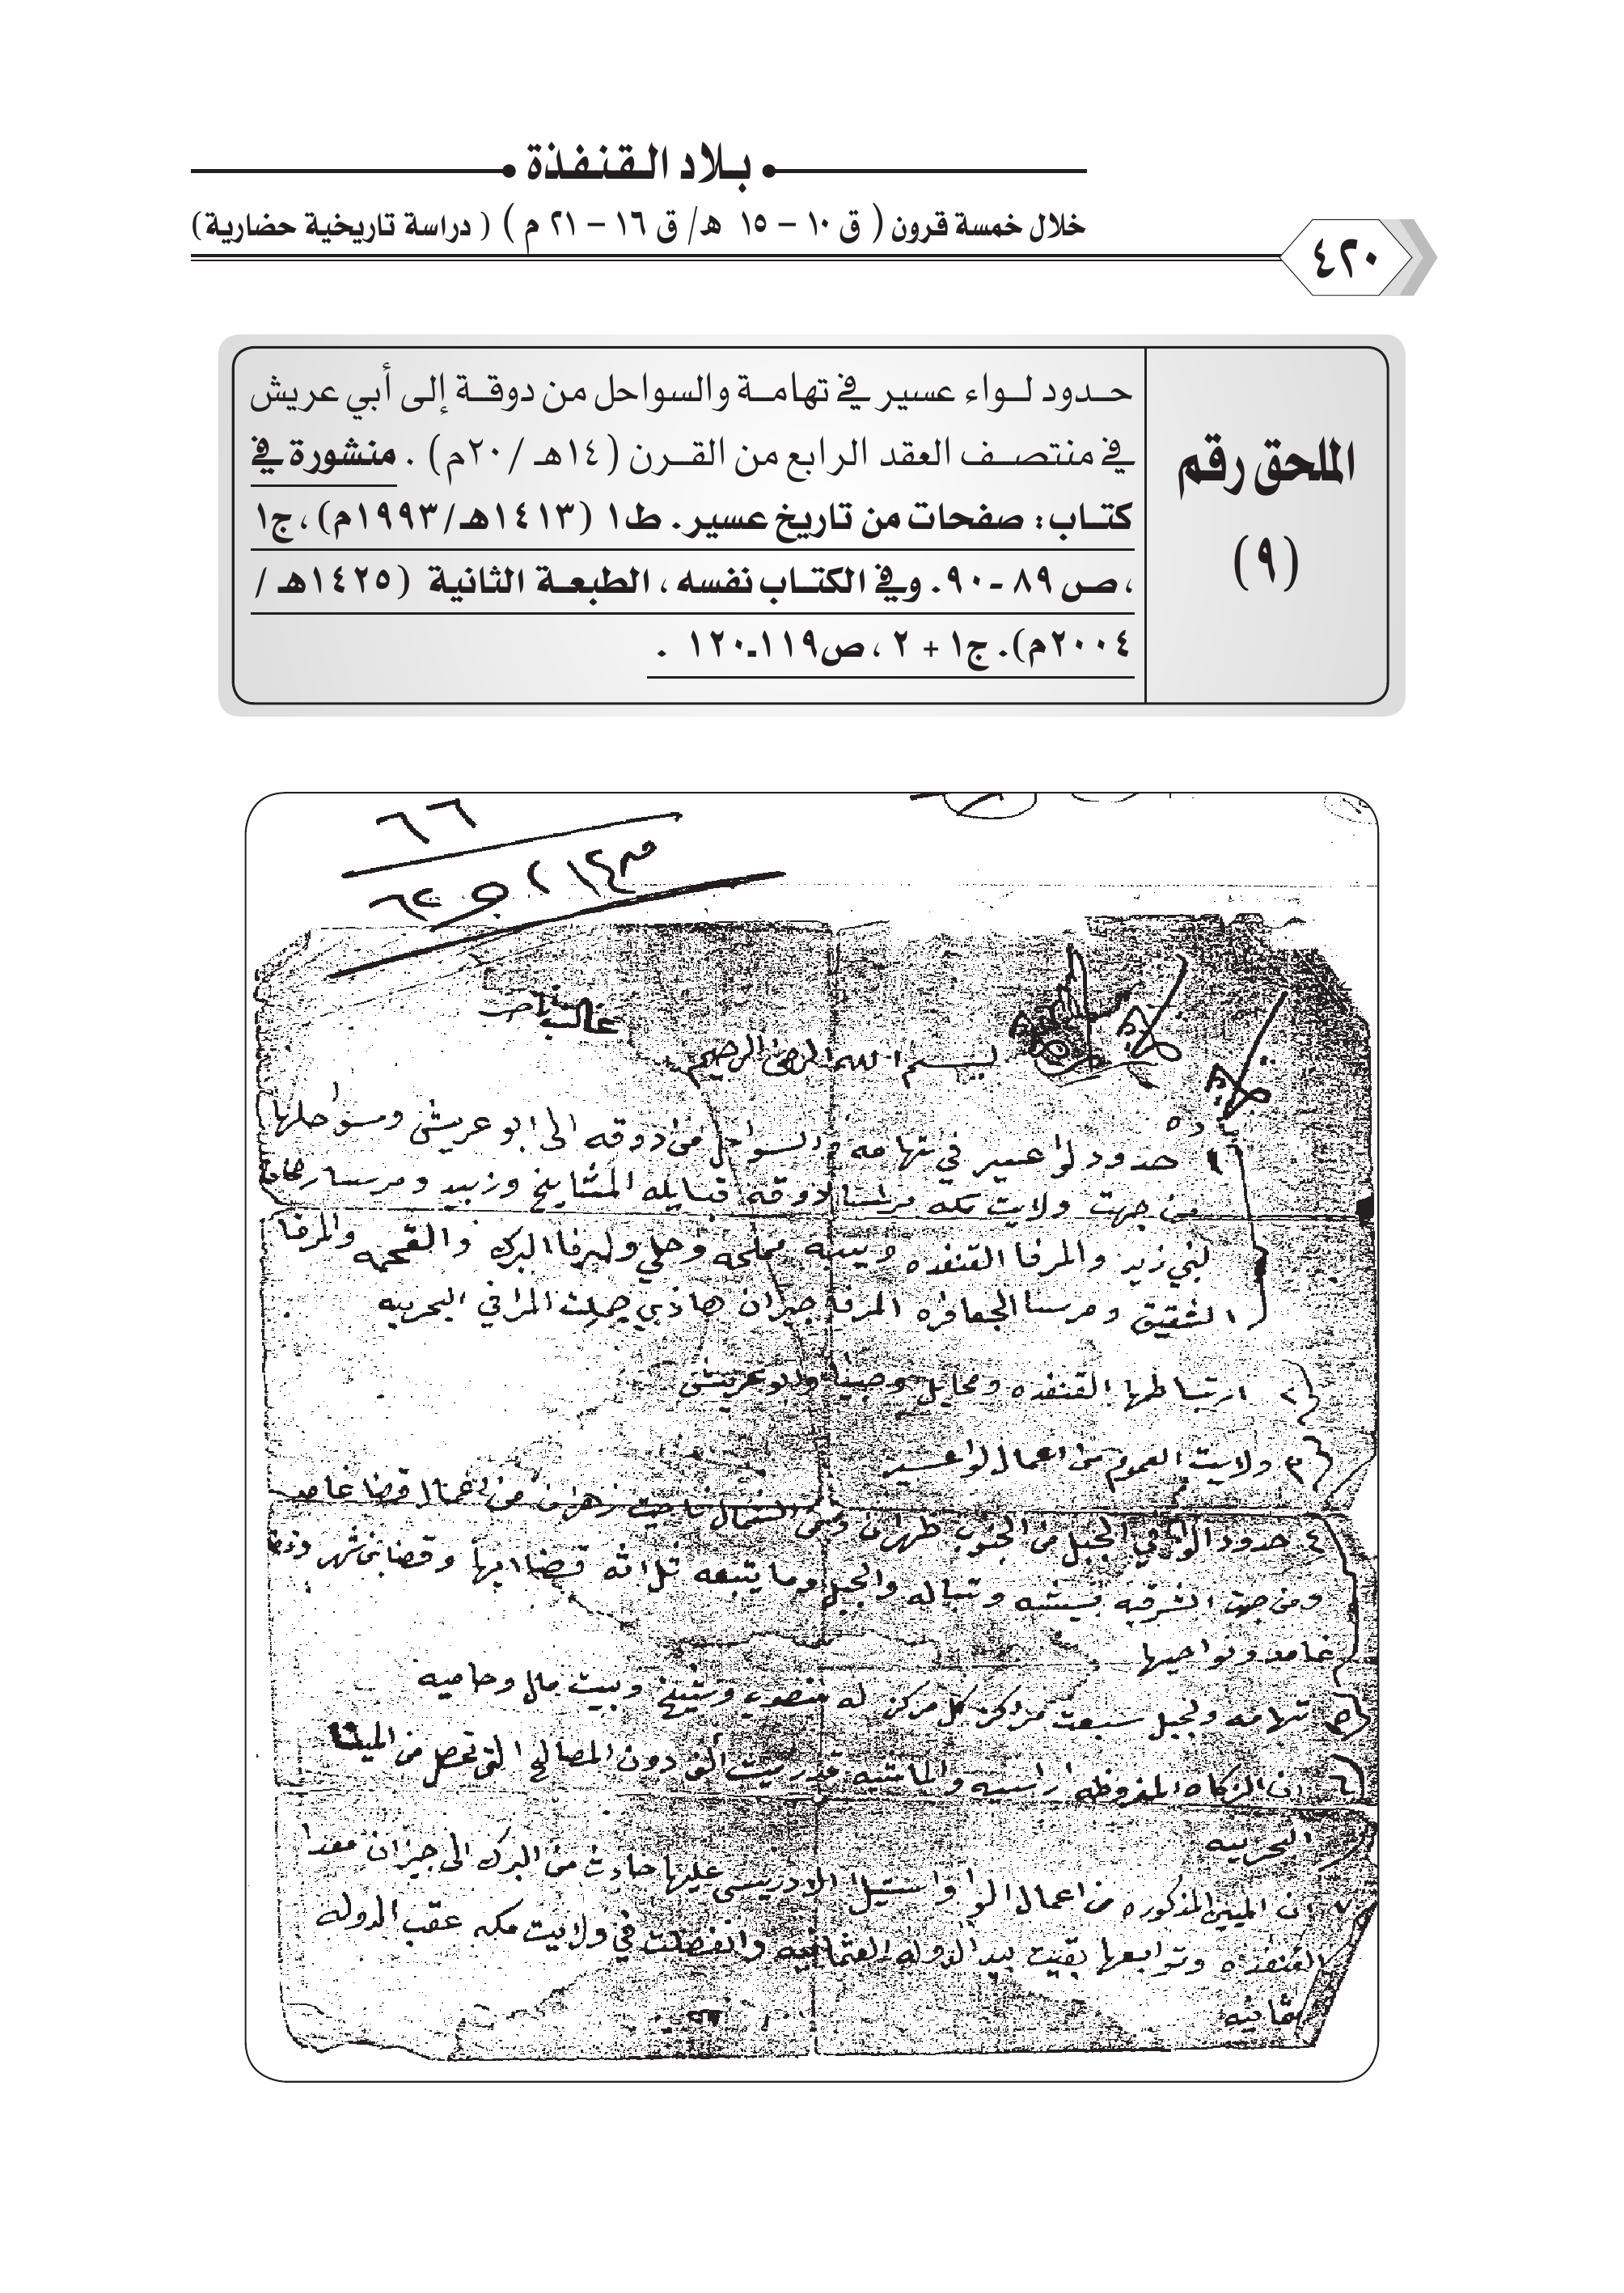 بلاد القنفذة
خلال خمسة قرون ( ق ١٠ – ١٥ هـ/ ق ١٦ – ٢١ م ) ( دراسة تاريخية حضارية)
٤٢٠
الملحق رقم
(٩)
حدود لواء عسير في تهامة والسواحل من دوقة إلى أبي عريش
في منتصف العقد الرابع من القرن (١٤هـ /٢٠م) . منشورة في
كتاب: صفحات من تاريخ عسير. ط١ (١٤١٣هـ/١٩٩٣م)، ج١
، ص ٨٩ -٩٠. وفي الكتاب نفسه ، الطبعة الثانية (١٤٢٥هـ /
٢٠٠٤م). ج١ + ٢ ، ص١١٩ـ١٢٠ .
٦٦
بسم الله الرحمن الرحيم
حدود لوا عسير في تهامه والسواحل من دوقه الى ابو عريش وسواحلها
من جهت ولايت مكه مرسا دوقه قبايله المشايخ وزبيد ومرسا
لبني زيد والمرفا القنفذه وحلي ولمرفا البرك والقحمه والمرفا
الشقيق ومرسا الجعافره المرفا جيزان هاذي جملت المرافي البحريه
٢ ارتباطها القنفذه ومحايل وصبيا وابو عريش
٣ ولايت العموم من اعمال لوا عسير
٤ حدود الوا في الجبل من الجنوب ظهران ومن الشمال ناحيت زهران من اعمال قضا غامد
ومن جهت الشرقيه بيشه وتباله والجبل وما يتبعه ثلاثه قضا ابها وقضا بني شهر وقضا
غامد ونواحيها
٥ تهامه ولجبل سبعت مراكز كل مركز له منصوب وشيخ وبيت مال وحاميه
٦ ان الزكاه المفروظه اراسيه والماشيه قدر ميت الف دون المصالح التي تحصل من المينا
البحريه
٧ ان الميني المذكوره من اعمال الوا واستيلا الادريسي عليها حادث من البرك الى جيزان معدا
القنفذه وتوابعها بقيت بيد الدوله العثمانيه وانفصلت في ولايت مكه عقب الدوله